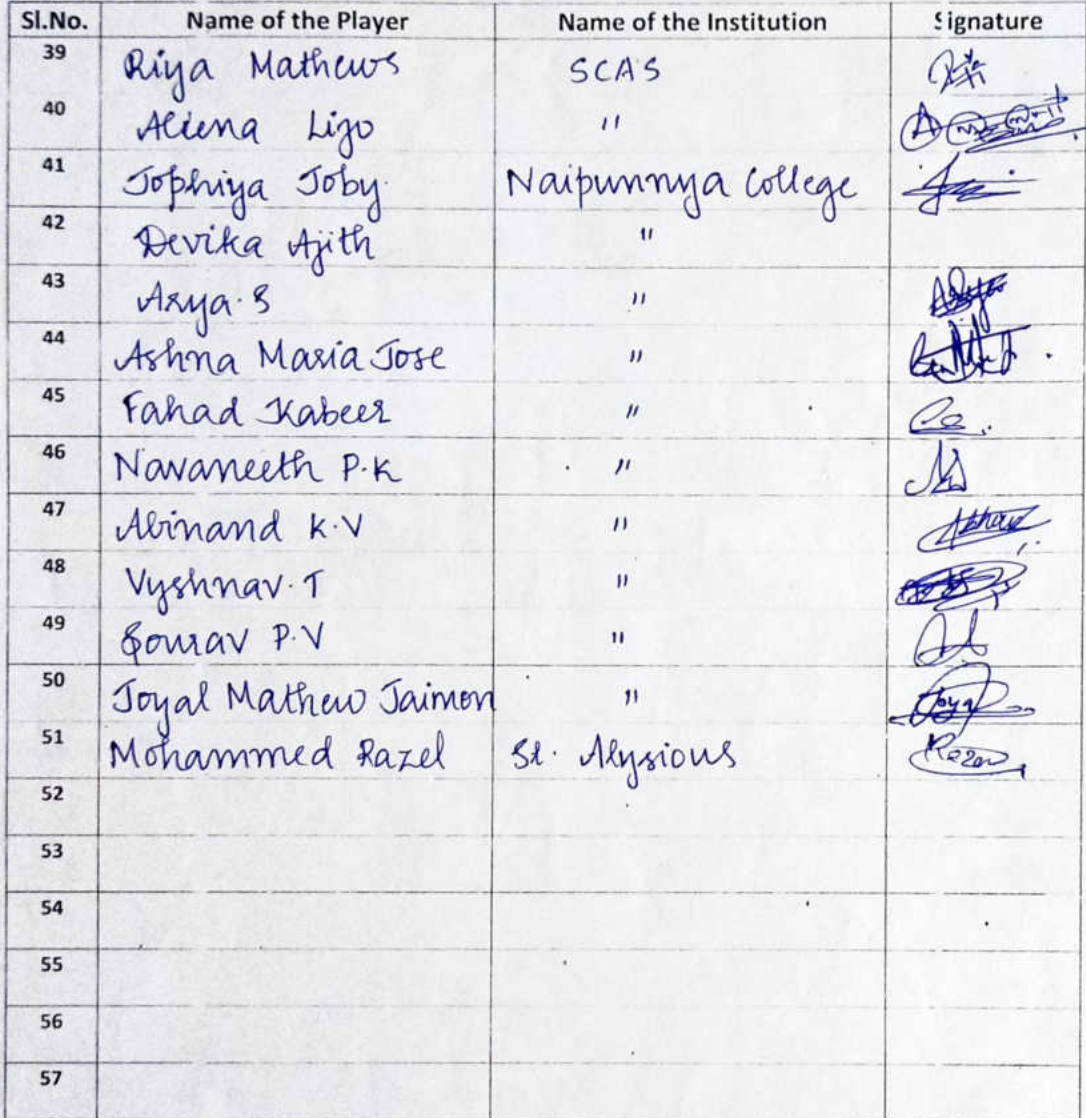 Sl.No. Name of the Player Name of the Institution Signature
39 Riya Mathews SCAS
40 Aliena Lijo "
41 Jophiya Joby. Naipunnya College
42 Devika Ajith "
43 Arya. S "
44 Ashna Maria Jose "
45 Fahad Kabeer "
46 Navaneeth P.K "
47 Abinand K.V "
48 Vyshnav. T "
49 Sourav P.V "
50 Joyal Mathew Jaimon " Joyal
51 Mohammed Razel St. Alysious
52
53
54
55
56
57